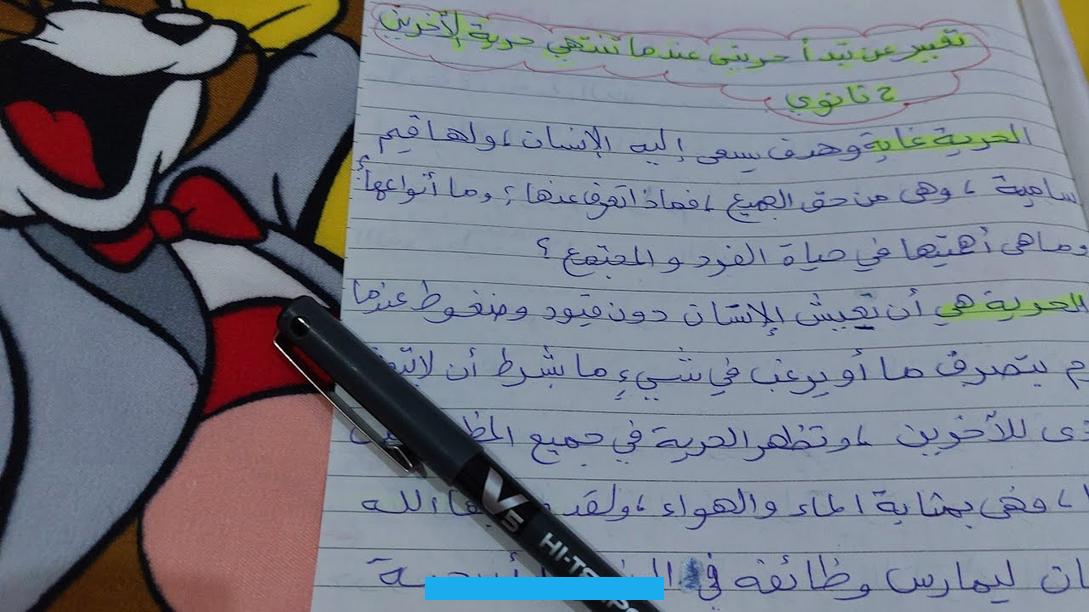 تعبير عن تبدأ حريتي عندما تنتهي حرية الأخرين
2 ثانوي
الحرية غاية وهدف يسعى إليه الإنسان ، ولها قيم
سامية ، وهي من حق الجميع ، فماذا تعرف عنها ؟ وما أنواعها؟
وما هي أهميتها في حياة الفرد و المجتمع ؟
الحرية هي أن تعيش الإنسان دون قيود وضغوط عندما
م يتصرف ما أو يرغب في شيءٍ ما بشرط أن لا
ذى للأخرين ، وتظهر الحرية في جميع
، وهي بمثابة الماء والهواء ، ولقد الله
ان ليمارس وظائفه في
V5 HI-TECPO